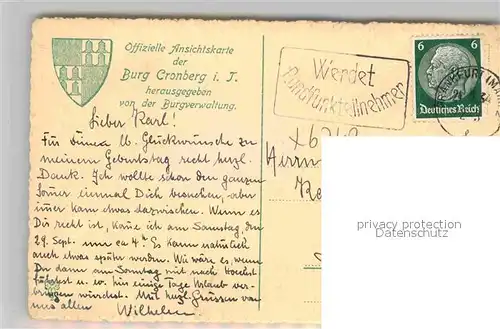 Offizielle Ansichtskarte
der
Burg Cronberg i. T.
herausgegeben
von der Burgverwaltung.
Werdet
Rundfunkteilnehmer
6 6
Deutsches Reich
FRANKFURT (MAIN)
Lieber Karl!
Für Deinen lb. Glückwünsche zu
meinem Geburtstag recht herzl.
Dank. Ich wollte schon den ganzen
Sommer einmal Dich besuchen, aber
immer kam etwas dazwischen. Wenn es
Dir recht ist, käme ich am Samstag, den
29. Sept. um ca 4 Es kann natürlich
auch etwas später werden. Wie wäre es, wenn
Du dann am Sonntag mit nach Hoechst
führest u. wir einige Tage Urlaub ver-
bringen würdest. Mit herzl. Grüssen von
uns allen Wilhelm
Herrn
privacy protection
Datenschutz